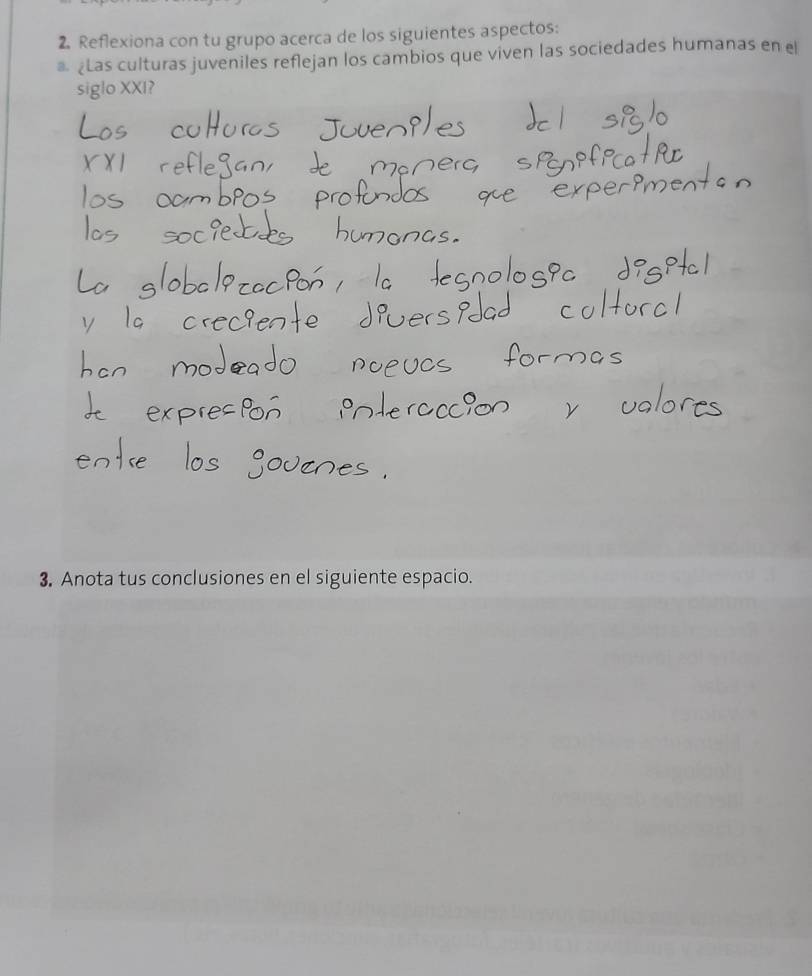 2. Reflexiona con tu grupo acerca de los siguientes aspectos:
a. ¿Las culturas juveniles reflejan los cambios que viven las sociedades humanas en el
siglo XXI?
Los culturas Juveniles del siglo
XXI reflegan, de manera significatic
los cambios profundos que experimentan
las sociedades humanas.
La globalización, la tegnologia digital
y la creciente diversidad cultural
han modeado nuevas formas
de exprecion interaccion y valores
entre los govenes.
3. Anota tus conclusiones en el siguiente espacio.